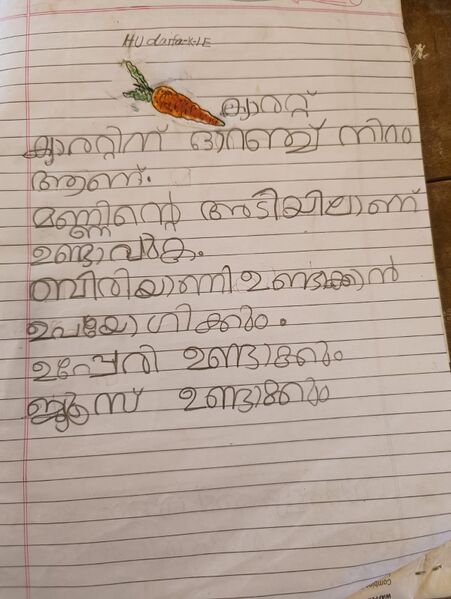 HUdaifa-K-LE
ക്യാരറ്റ്
ക്യാരറ്റിന് ഓറഞ്ച് നിറം
ആണ്.
മണ്ണിൻ്റെ അടിയിലാണ്
ഉണ്ടാവുക.
ബിരിയാണി ഉണ്ടക്കാൻ
ഉപയോഗിക്കും.
ഉപ്പേരി ഉണ്ടാക്കും
ജ്യൂസ് ഉണ്ടാക്കും